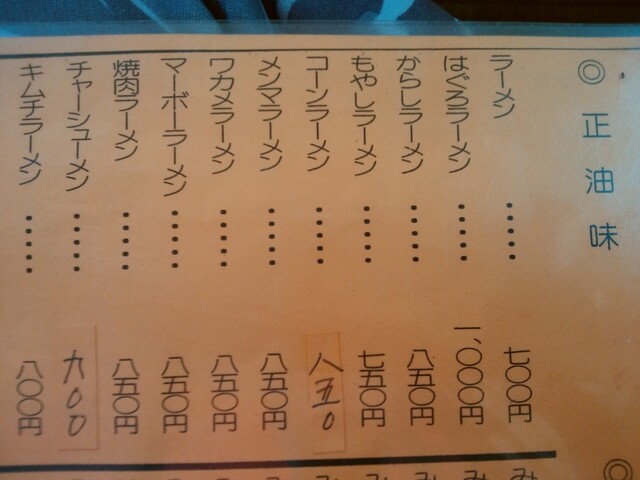 ◎正油味
ラーメン……七〇〇円
はぐろラーメン……一、〇〇〇円
からしラーメン……八五〇円
もやしラーメン……七五〇円
コーンラーメン……八五0
メンマラーメン……八五〇円
ワカメラーメン……八五〇円
マーボーラーメン……八五〇円
焼肉ラーメン……八五〇円
チャーシューメン……九00
キムチラーメン……八〇〇円
◎